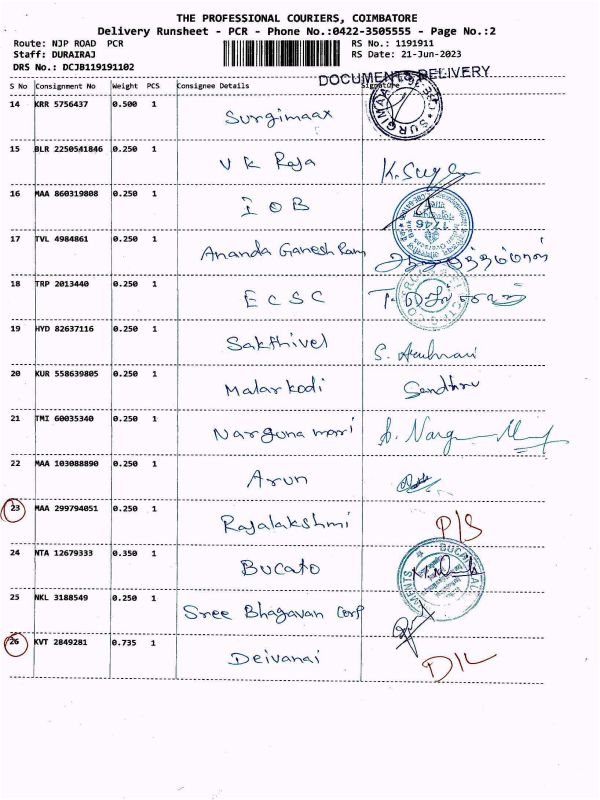 THE PROFESSIONAL COURIERS, COIMBATORE
Delivery Runsheet - PCR - Phone No.:0422-3505555 - Page No.:2
Route: NJP ROAD PCR RS No.: 1191911
Staff: DURAIRAJ RS Date: 21-Jun-2023
DRS No.: DCJB119191102
DOCUMENTS DELIVERY
S No Consignment No Weight PCS Consignee Details Signature
14 KRR 5756437 0.500 1 Surgimaax
SURGIMAAX
15 BLR 2250541846 0.250 1 V K Raja
16 MAA 860319808 0.250 1 I O B
1746
17 TVL 4984861 0.250 1 Ananda Ganesh Ram
18 TRP 2013440 0.250 1 E C S C
19 HYD 82637116 0.250 1 Sakthivel
20 KUR 558639805 0.250 1 Malarkodi Sandhru
21 TMI 60035340 0.250 1 Narguna mani
22 MAA 103088890 0.250 1 Arun
23 MAA 299794051 0.250 1 Rajalakshmi P/S
24 NTA 12679333 0.350 1 Bucato
25 NKL 3188549 0.250 1 Sree Bhagavan Corp
26 KVT 2849281 0.735 1 Deivanai D/L